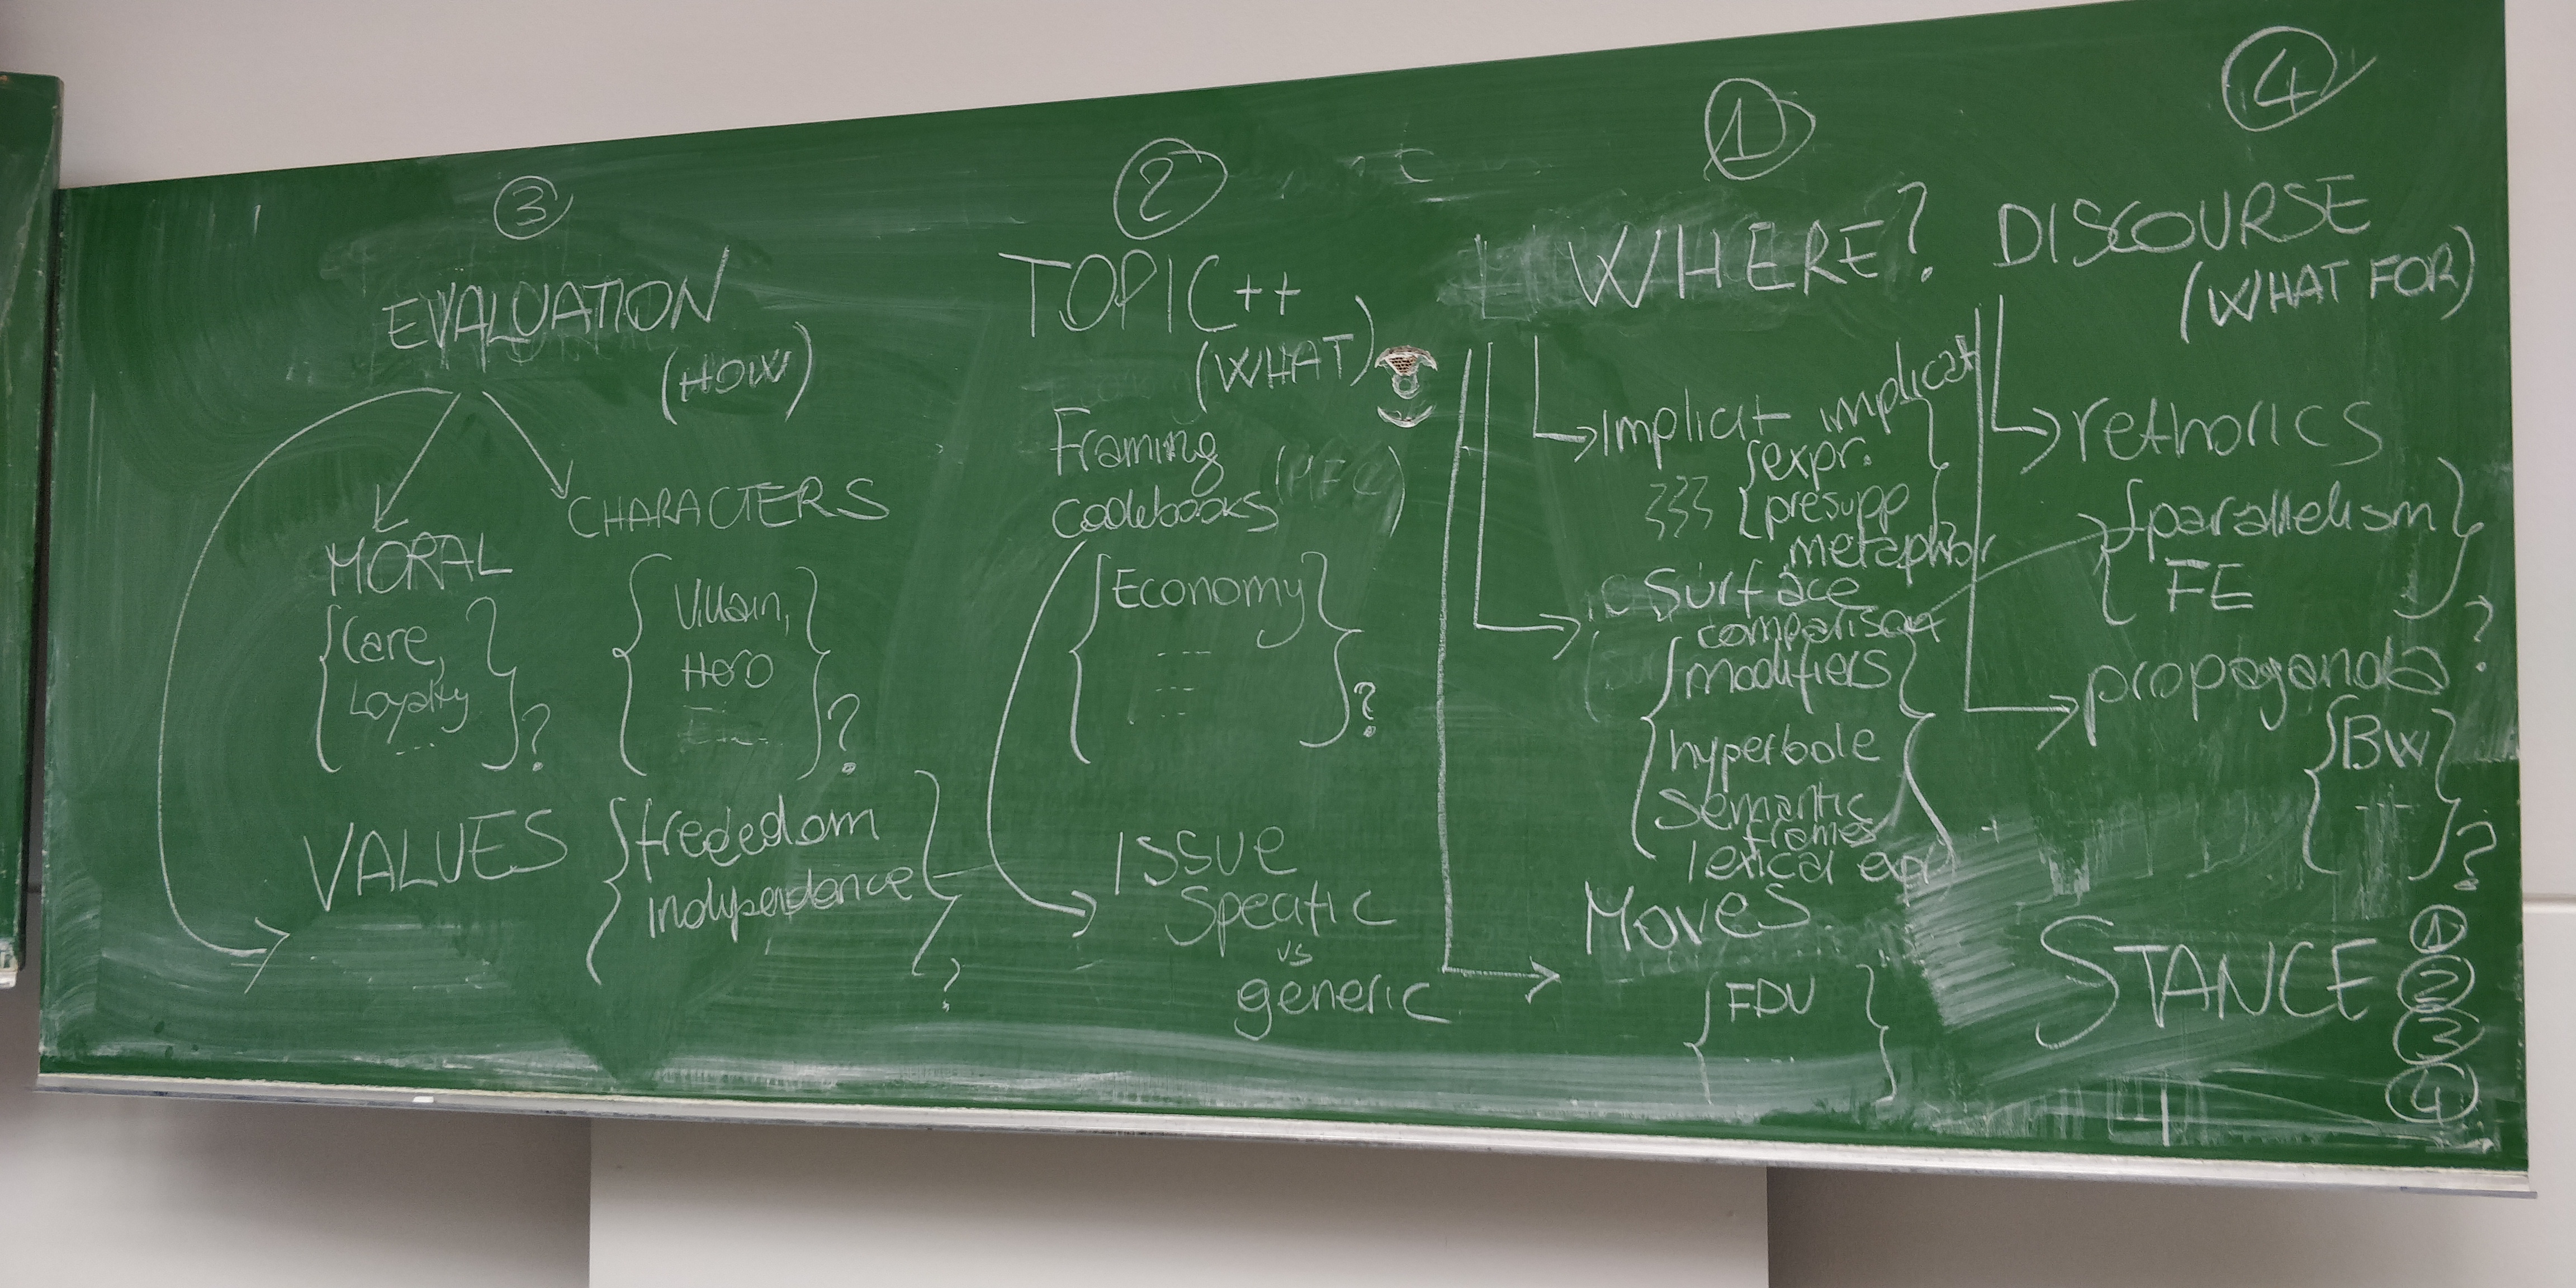 3
EVALUATION
(HOW)
MORAL
{Care,
Loyalty
...}?
CHARACTERS
{Villain,
Hero
...}?
VALUES {freedom
independence}
?
2
TOPIC++
(WHAT)
Framing
codebooks (MFC)
{Economy
...
...
...}?
Issue
Specific
vs
generic
1
WHERE?
Implicit implicat
{expr.
{presupp
metaphor
Surface
comparison
{modifiers
hyperbole
semantic
frames
lexical exp}
Moves
{FDU
...}
4
DISCOURSE
(WHAT FOR)
rethorics
{parallelism
FE}
?
propaganda
{BW
...}
?
STANCE 1
2
3
4